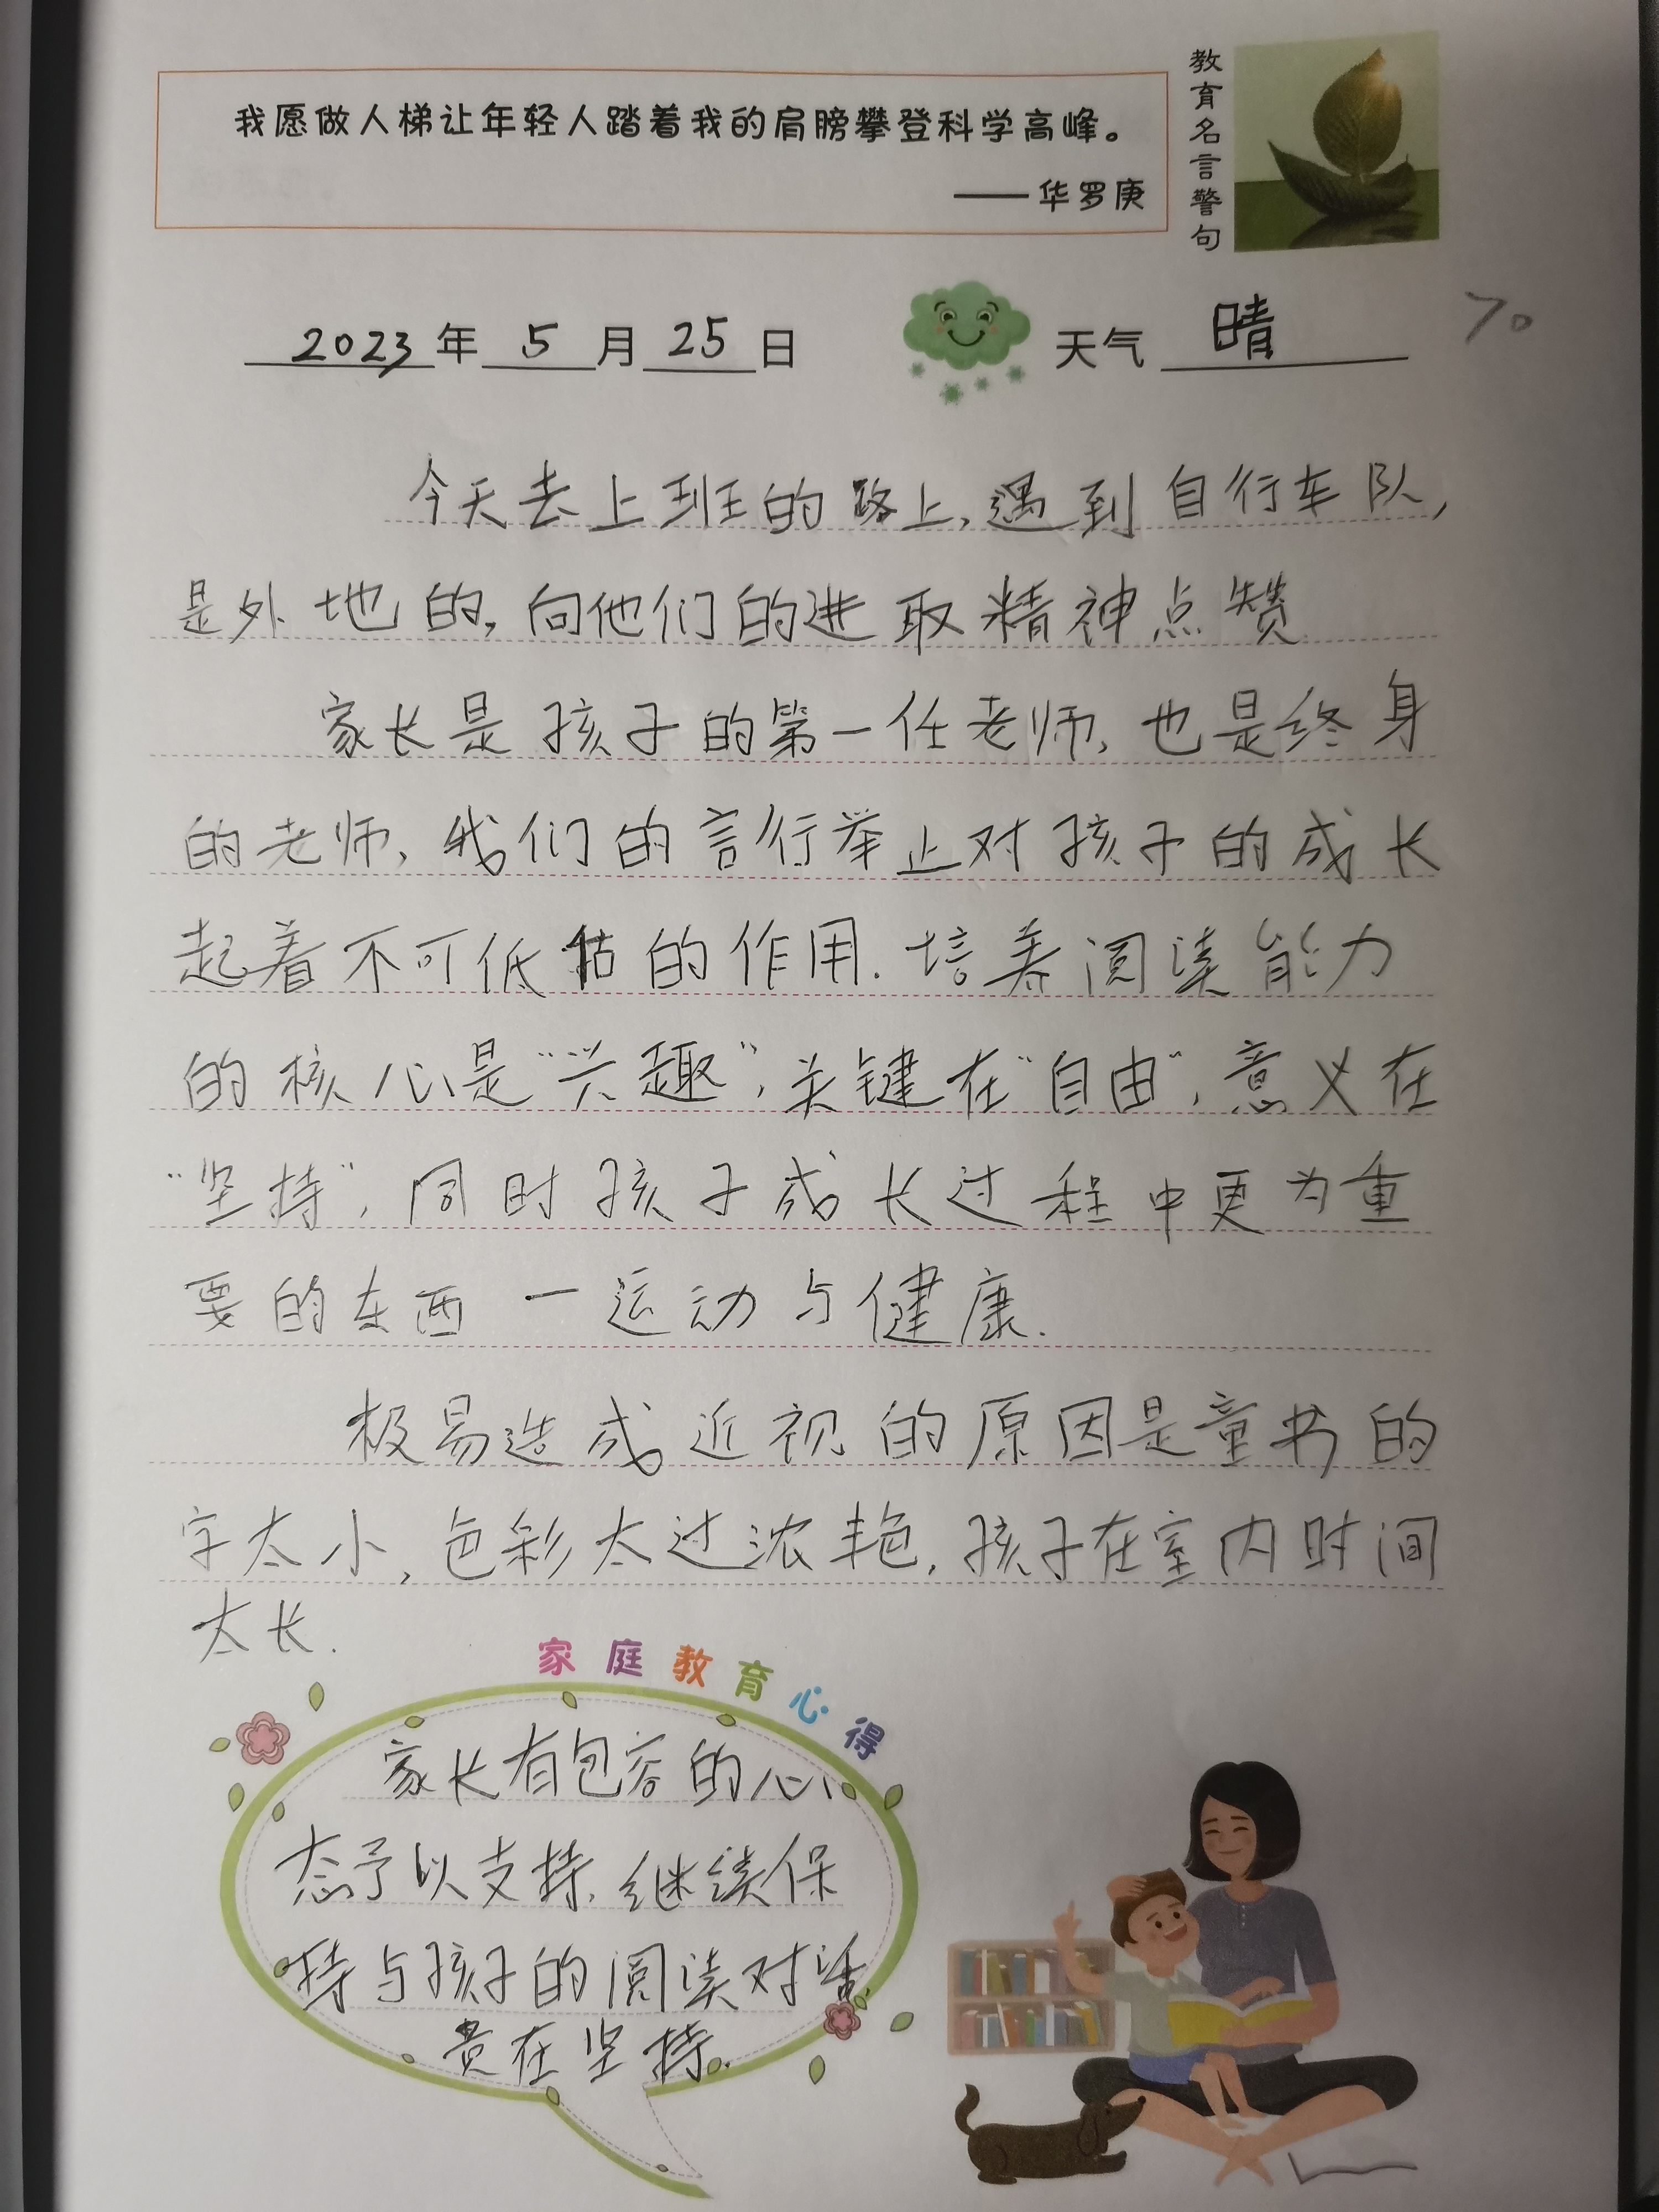 我愿做人梯让年轻人踏着我的肩膀攀登科学高峰。
——华罗庚
教育名言警句
2023年5月25日 天气 晴
70
今天去上班的路上,遇到自行车队,
是外地的,向他们的进取精神点赞
家长是孩子的第一任老师,也是终身
的老师,我们的言行举止对孩子的成长
起着不可低估的作用.培养阅读能力
的核心是“兴趣”,关键在“自由”,意义在
“坚持”,同时孩子成长过程中更为重
要的东西一运动与健康.
极易造成近视的原因是童书的
字太小,色彩太过浓艳,孩子在室内时间
太长.
家庭教育心得
家长有包容的心
态予以支持,继续保
持与孩子的阅读对话
贵在坚持.